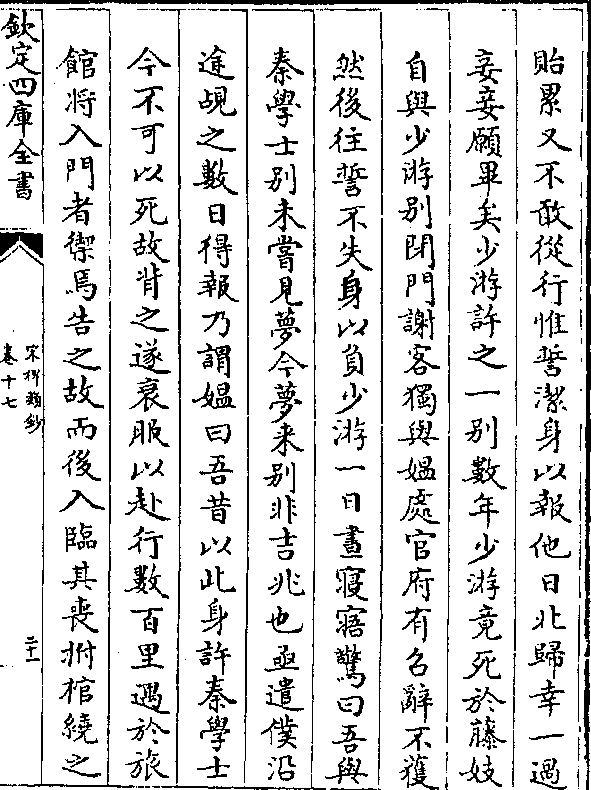 貽累又不敢從行惟誓潔身以報他日北歸幸一過
妾妾願畢矣少游許之一别數年少游竟死於藤妓
自與少游别閉門謝客獨與媼處官府有召辭不獲
然後往誓不失身以負少游一日晝寢寤驚曰吾與
秦學士别未嘗見夢今夢来别非吉兆也亟遣僕沿
途覘之數日得報乃謂媼曰吾昔以此身許秦學士
今不可以死故背之遂衰服以赴行數百里遇於旅
館将入門者禦焉告之故而後入臨其喪拊棺繞之
欽定四庫全書
宋稗類鈔
卷十七
二十一